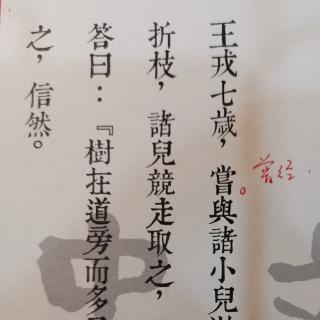 王戎七歲，嘗與諸小兒
曾经
折枝，諸兒競走取之，
答曰：『樹在道旁而多
之，信然。
中